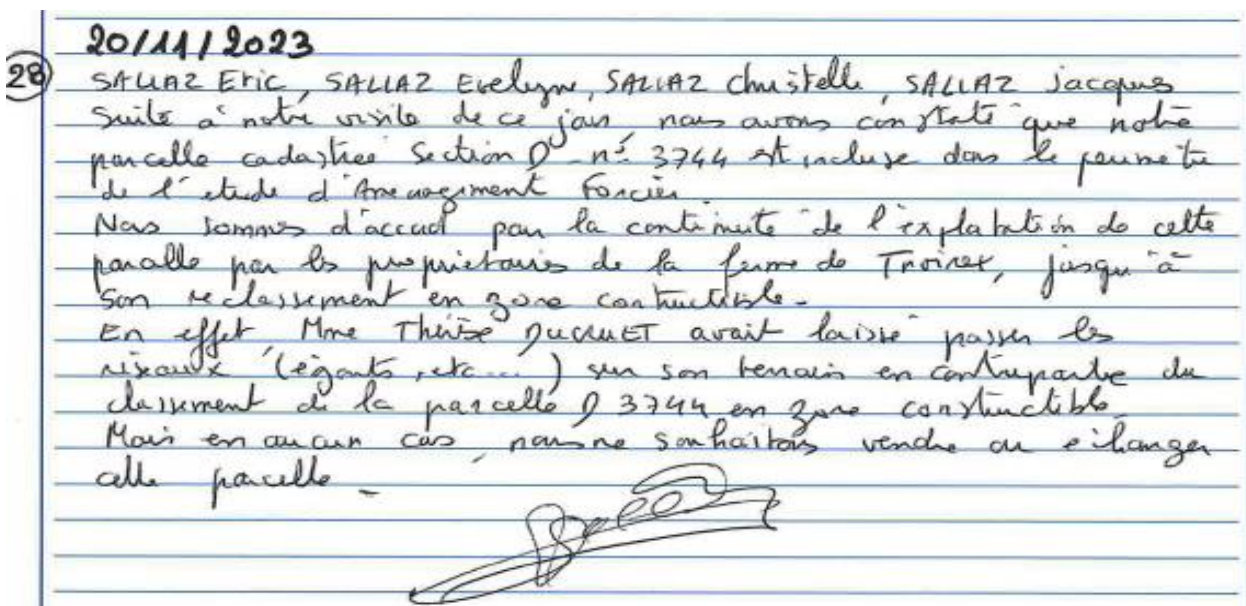 20/11/2023
28 SALLAZ Eric, SALLAZ Evelyne, SALLAZ Christelle, SALLAZ Jacques
Suite à notre visite de ce jour, nous avons constaté que notre
parcelle cadastrée Section D n° 3744 est incluse dans le périmètre
de l'étude d'Aménagement Foncier.
Nous sommes d'accord pour la continuité de l'exploitation de cette
parcelle par les propriétaires de la ferme de Troinex, jusqu'à
son reclassement en zone constructible.
En effet, Mme Thérèse DUCRUET avait laissé passer les
réseaux (égouts, etc...) sur son terrain en contrepartie du
classement de la parcelle D 3744 en zone constructible
Mais en aucun cas, nous ne souhaitons vendre ou échanger
cette parcelle -